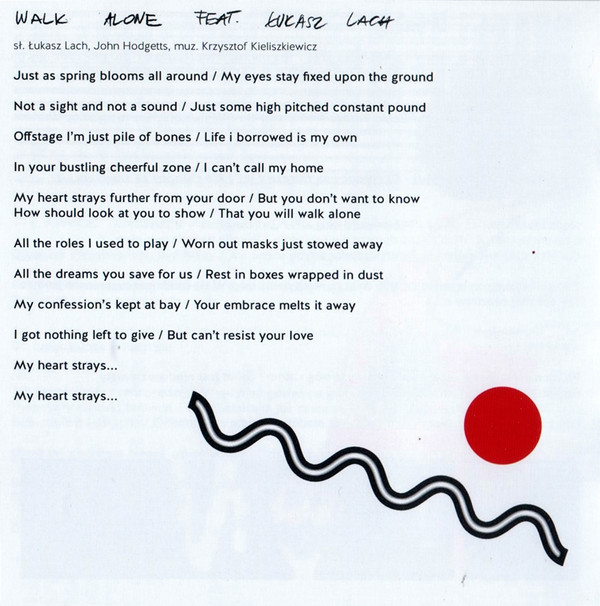 WALK ALONE FEAT. ŁUKASZ LACH
sł. Łukasz Lach, John Hodgetts, muz. Krzysztof Kieliszkiewicz
Just as spring blooms all around / My eyes stay fixed upon the ground
Not a sight and not a sound / Just some high pitched constant pound
Offstage I'm just pile of bones / Life i borrowed is my own
In your bustling cheerful zone / I can't call my home
My heart strays further from your door / But you don't want to know
How should look at you to show / That you will walk alone
All the roles I used to play / Worn out masks just stowed away
All the dreams you save for us / Rest in boxes wrapped in dust
My confession's kept at bay / Your embrace melts it away
I got nothing left to give / But can't resist your love
My heart strays...
My heart strays...